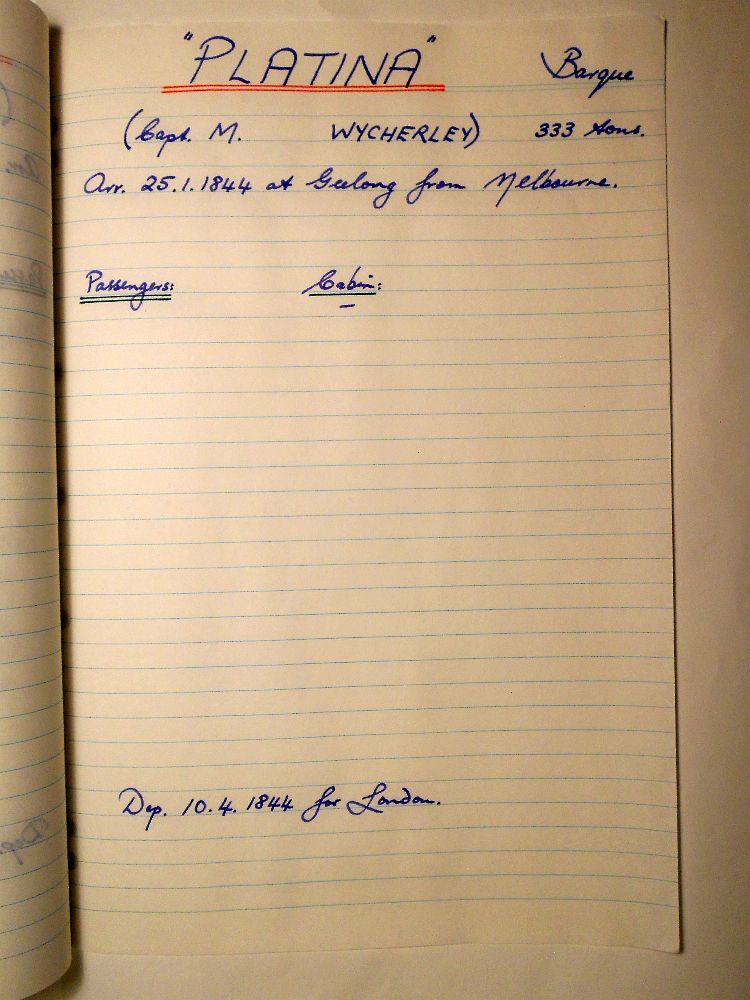 "PLATINA" Barque
(Capt. M. WYCHERLEY) 333 tons.
Arr. 25.1.1844 at Geelong from Melbourne.
Passengers: Cabin:
–
Dep. 10.4.1844 for London.